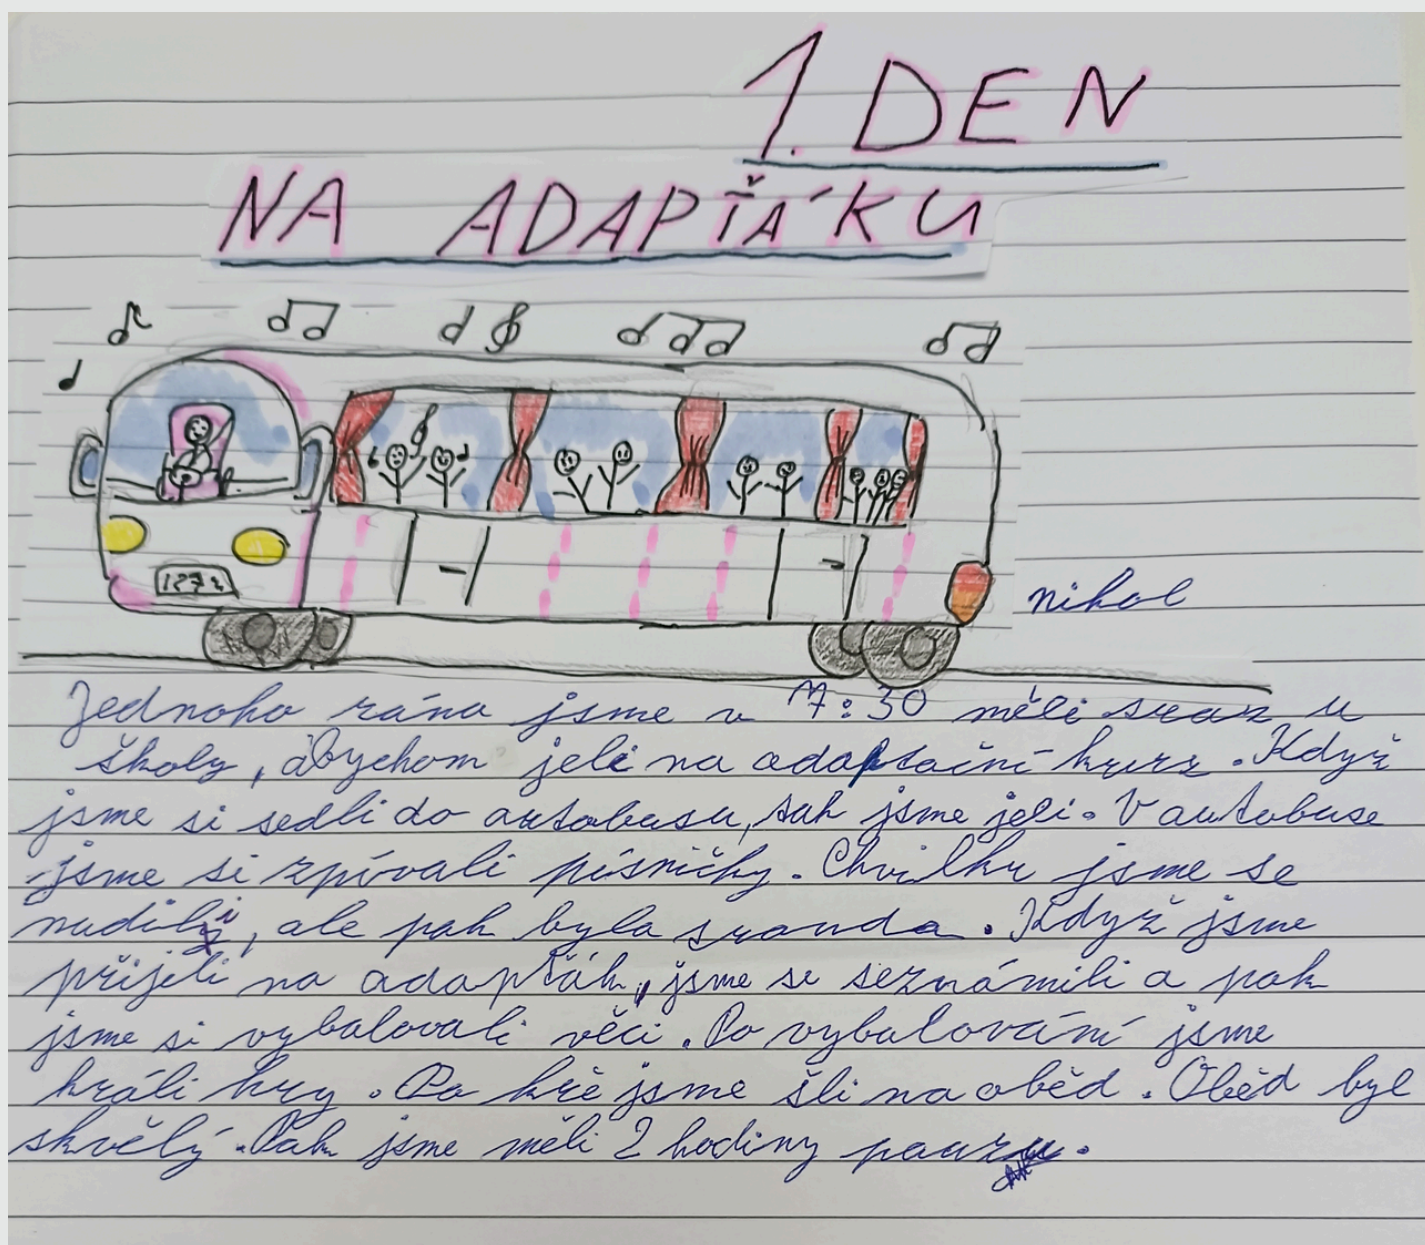 1. DEN
NA ADAPŤÁKU
nikol
Jednoho rána jsme v 7:30 měli sraz u
školy, abychom jeli na adaptační kurz. Když
jsme si sedli do autobusu, tak jsme jeli. V autobuse
jsme si zpívali písničky. Chvilku jsme se
nudili, ale pak byla sranda. Když jsme
přijeli na adapťák, jsme se seznámili a pak
jsme si vybalovali věci. Po vybalování jsme
hráli hry. Po hře jsme šli na oběd. Oběd byl
skvělý. Pak jsme měli 2 hodiny pauzu.